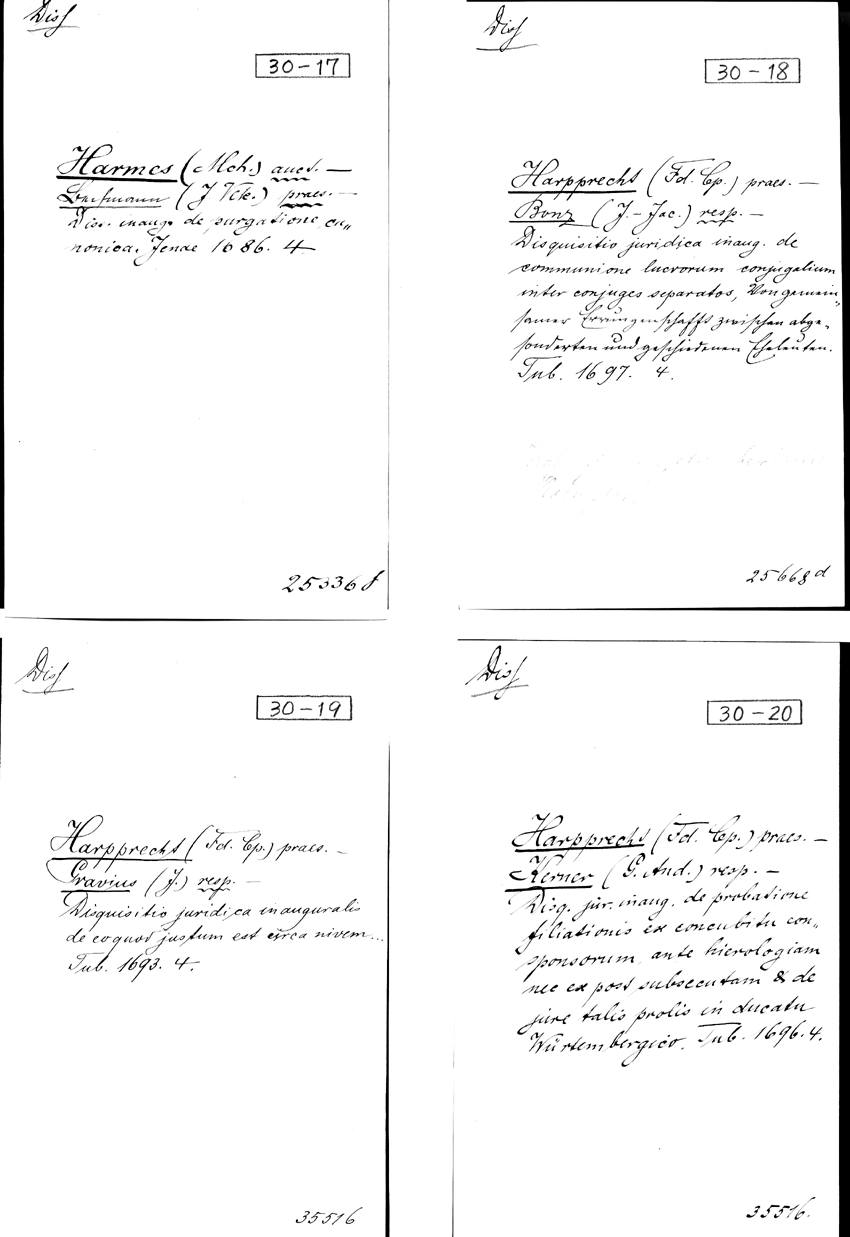 Diss
30-17
Harmes (Mch.) auct. —
(J Vck.) praes. —
Diss. inaug. de purgatione ca„
nonica. Jenae 1686. 4
25336 f
Diss
30-18
Harpprecht (Fd. Cp.) praes. —
Bonz (J.-Jac.) resp. —
Disquisitio juridica inaug. de
communione lucrorum conjugalium
inter conjuges separatos, Von gemein„
samer Errungenschafft zwischen abge„
sonderten und geschiedenen Eheleuten.
Tub. 1697. 4.
25668 d
Diss
30-19
Harpprecht (Fd. Cp.) praes. —
Gravius (J.) resp. —
Disquisitio juridica inauguralis
de eo quod justum est circa nivem...
Tub. 1693. 4.
35516
Diss
30-20
Harpprecht (Fd. Cp.) praes. —
Kerner (G. And.) resp. —
Disq. jur. inaug. de probatione
filiationis ex concubitu con„
sponsorum ante hierologiam
nec ex post subsecutam & de
jure talis prolis in ducatu
Würtembergico. Tub. 1696. 4.
35516.